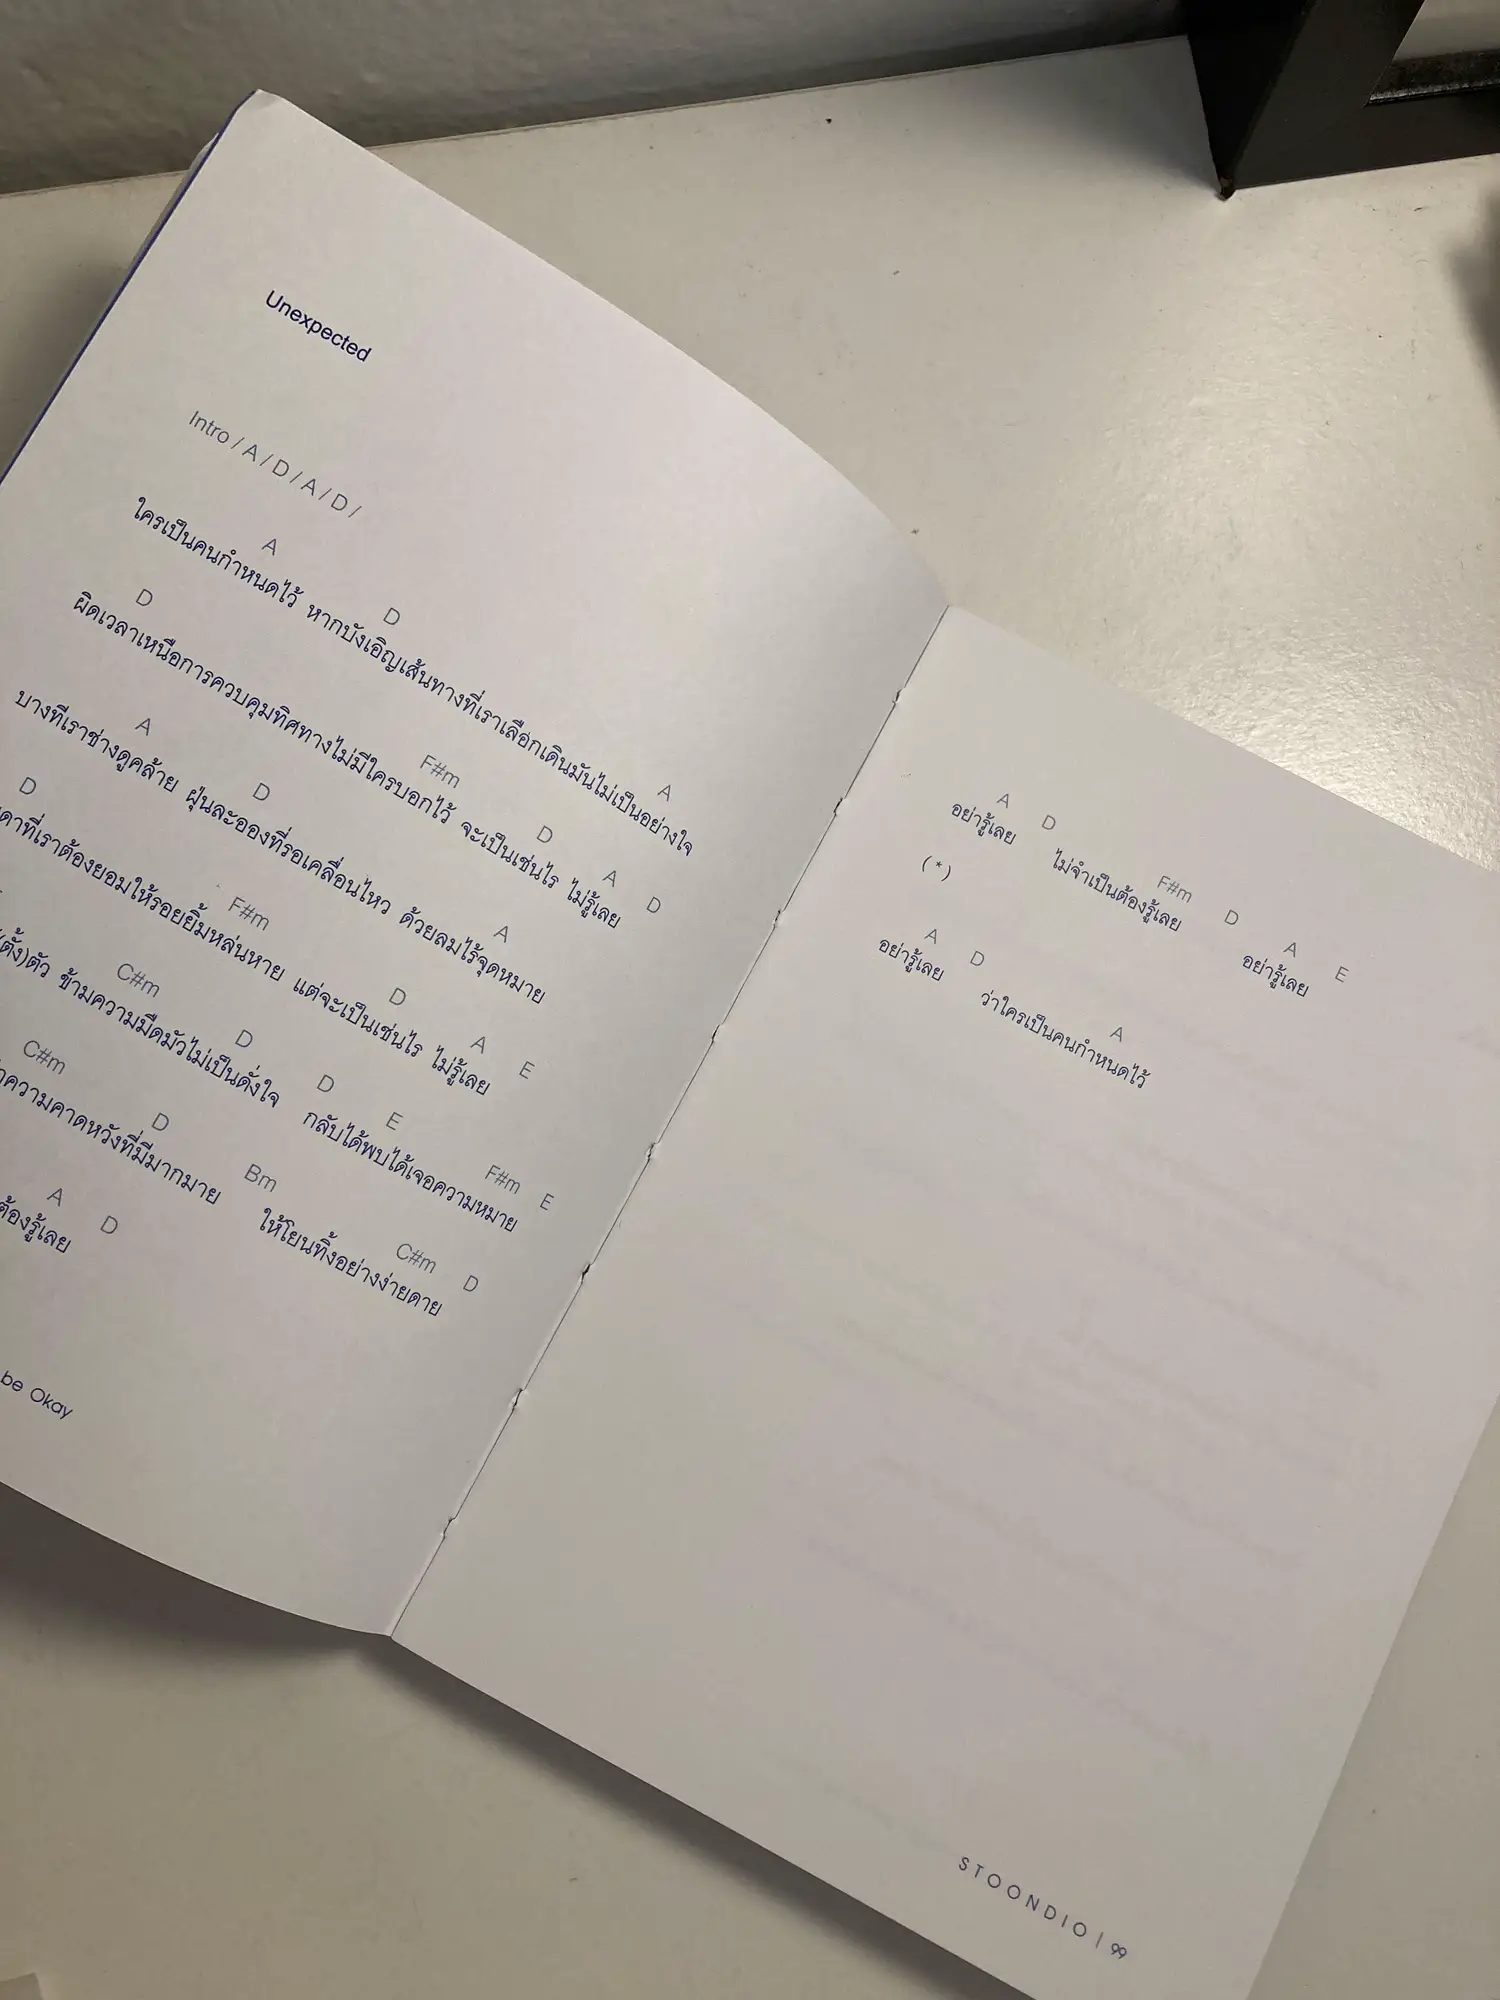 Unexpected
Intro / A / D / A / D /
A D A
ใครเป็นคนกำหนดไว้ หากบังเอิญเส้นทางที่เราเลือกเดินมันไม่เป็นอย่างใจ
D F#m D A D
ผิดเวลาเหนือการควบคุมทิศทางไม่มีใครบอกไว้ จะเป็นเช่นไร ไม่รู้เลย
A D A
บางทีเราช่างดูคล้าย ฝุ่นละอองที่รอเคลื่อนไหว ด้วยลมไร้จุดหมาย
D F#m D A E
ที่เราต้องยอมให้รอยยิ้มหล่นหาย แต่จะเป็นเช่นไร ไม่รู้เลย
C#m D D E F#m E
(ตั้ง)ตัว ข้ามความมืดมัวไม่เป็นดั่งใจ กลับได้พบได้เจอความหมาย
C#m D Bm C#m D
ความคาดหวังที่มีมากมาย ให้โยนทิ้งอย่างง่ายดาย
A D
ต้องรู้เลย
be Okay
A D F#m D A E
อย่ารู้เลย ไม่จำเป็นต้องรู้เลย อย่ารู้เลย
(*)
A D A
อย่ารู้เลย ว่าใครเป็นคนกำหนดไว้
STOONDIO | 99